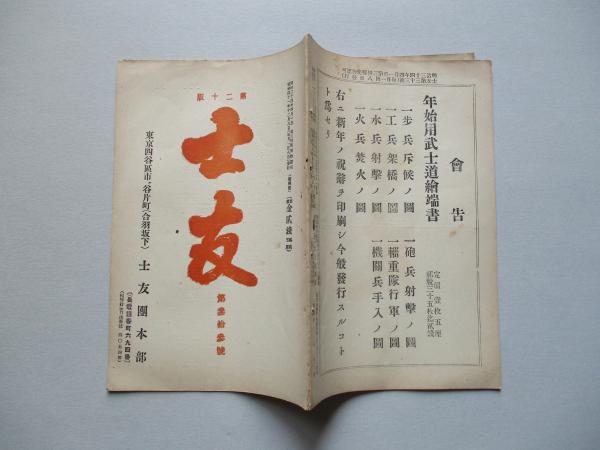 會告
年始用武士道繪端書
定價 壹枚五厘
郵稅三十五枚迄貳錢
一步兵斥候ノ圖
一砲兵射擊ノ圖
一工兵架橋ノ圖
一輜重隊行軍ノ圖
一水兵射擊ノ圖
一機關兵手入ノ圖
一火兵焚火ノ圖
右ニ新年ノ祝辭ヲ印刷シ今般發行スルコト
ト爲セリ
第二十版
士友
第參拾參號
金貳錢
東京四谷區市ヶ谷片町(合羽坂下)
士友團本部
(長電話番町六九四番)